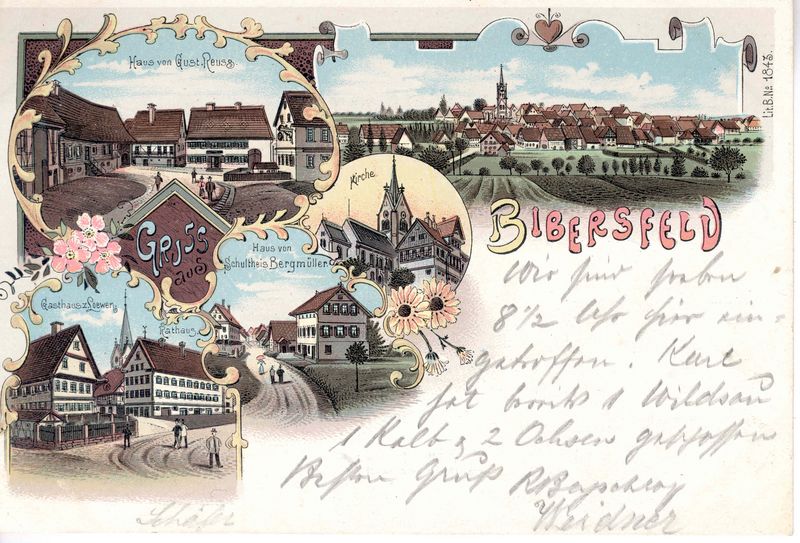 Haus von Gust. Reuss
Lit.B.No 1843.
Kirche
BIBERSFELD
GRUSS
aus
Haus von
Schultheis Bergmüller
Gasthaus z. Loewen
Rathaus
Wir sind soeben
8 1/2 Uhr hier ein-
getroffen. Karl
hat bereits 1 Wildsau
1 Kalb u 2 Ochsen geschossen
Besten Gruß
Weidner
Schäfer